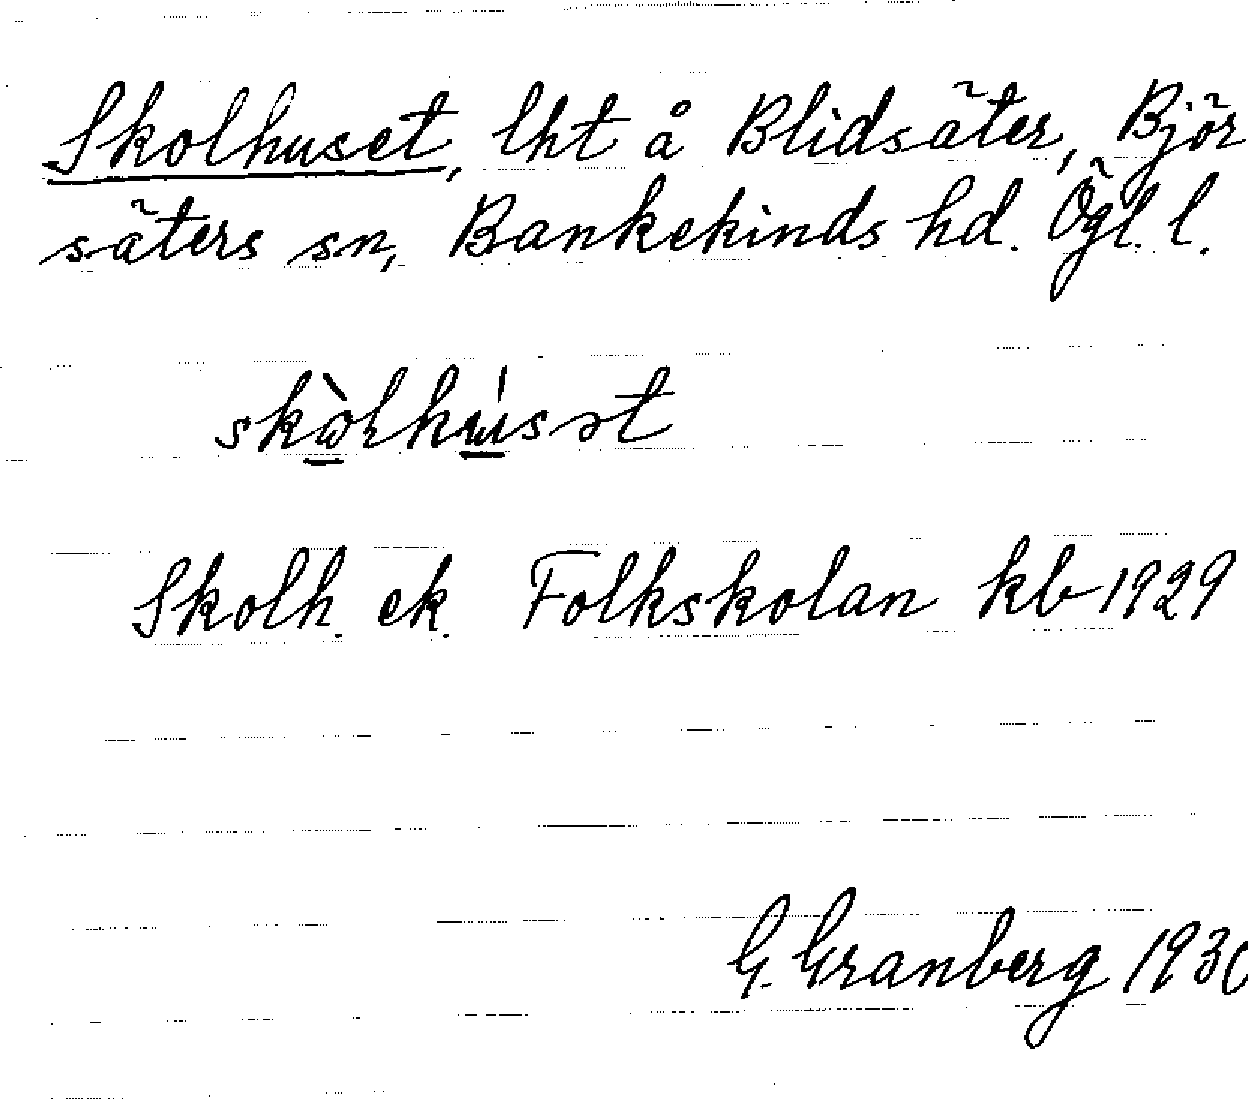 Skolhuset, lht å Blidsäter, Björ
säters sn, Bankekinds hd. Ögl. l.
Skolh. ek. Folkskolan kb 1929
G. Granberg 1930